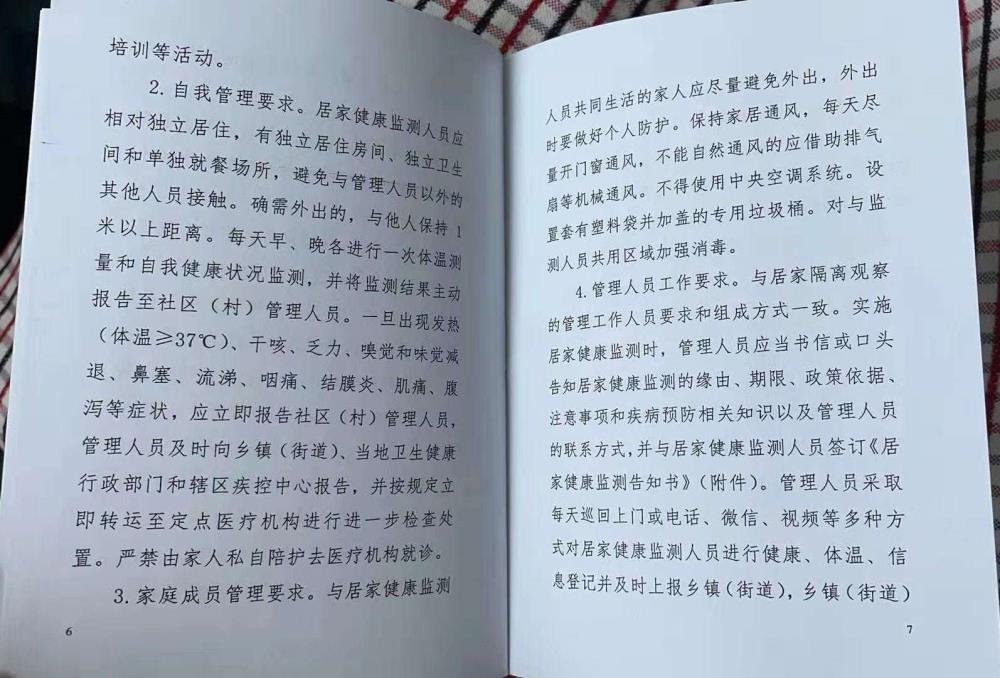 培训等活动。
2. 自我管理要求。居家健康监测人员应
相对独立居住，有独立居住房间、独立卫生
间和单独就餐场所，避免与管理人员以外的
其他人员接触。确需外出的，与他人保持 1
米以上距离。每天早、晚各进行一次体温测
量和自我健康状况监测，并将监测结果主动
报告至社区（村）管理人员。一旦出现发热
（体温≥37℃）、干咳、乏力、嗅觉和味觉减
退、鼻塞、流涕、咽痛、结膜炎、肌痛、腹
泻等症状，应立即报告社区（村）管理人员，
管理人员及时向乡镇（街道）、当地卫生健康
行政部门和辖区疾控中心报告，并按规定立
即转运至定点医疗机构进行进一步检查处
置。严禁由家人私自陪护去医疗机构就诊。
3. 家庭成员管理要求。与居家健康监测
6
人员共同生活的家人应尽量避免外出，外出
时要做好个人防护。保持家居通风，每天尽
量开门窗通风，不能自然通风的应借助排气
扇等机械通风。不得使用中央空调系统。设
置套有塑料袋并加盖的专用垃圾桶。对与监
测人员共用区域加强消毒。
4. 管理人员工作要求。与居家隔离观察
的管理工作人员要求和组成方式一致。实施
居家健康监测时，管理人员应当书信或口头
告知居家健康监测的缘由、期限、政策依据、
注意事项和疾病预防相关知识以及管理人员
的联系方式，并与居家健康监测人员签订《居
家健康监测告知书》（附件）。管理人员采取
每天巡回上门或电话、微信、视频等多种方
式对居家健康监测人员进行健康、体温、信
息登记并及时上报乡镇（街道），乡镇（街道）
7